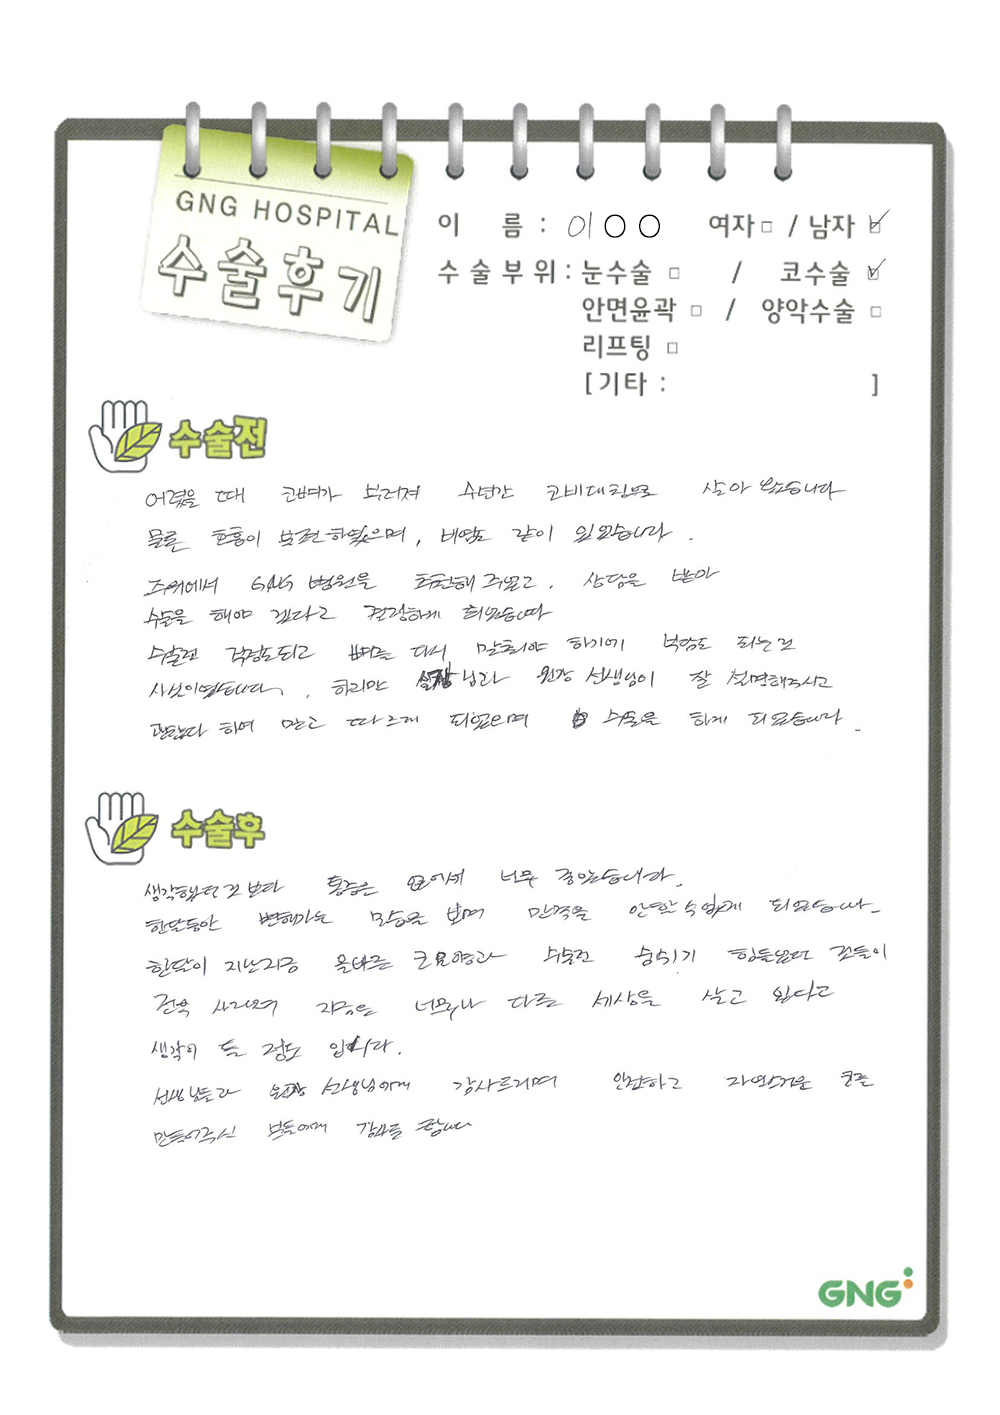 GNG HOSPITAL
수술후기
이 름 : 이○○ 여자□ / 남자☑
수술부위 : 눈수술 □ / 코수술 ☑
안면윤곽 □ / 양악수술 □
리프팅 □
[기타 : ]
수술전
어렸을 때 코뼈가 부러져 수년간 코비대칭으로 살아 왔습니다
물론 호흡이 불편하였으며, 비염도 같이 있었습니다.
주위에서 GNG 병원을 추천해주었고, 상담을 받아
수술을 해야 겠다고 결정하게 되었습니다
수술전 걱정도되고 뼈를 다시 맞춰야 하기에 부담도 되는것
사실이었습니다. 하지만 실장님과 원장 선생님이 잘 설명해주시고
괜찮다 하여 믿고 따르게 되었으며 수술을 하게 되었습니다.
수술후
생각했던것보다 통증은 없어서 너무 좋았습니다.
한달동안 변해가는 모습을 보며 만족을 안할수없게 되었습니다.
한달이 지난지금 올바른 코모양과 수술전 숨쉬기 힘들었던 것들이
전혀 사라지며 지금은 너무나 다른 세상을 살고 있다고
생각이 들 정도 입니다.
선생님들과 원장 선생님에게 감사드리며 안전하고 자연스러운 코를
만들어주신 분들에게 감사를 합니다
GNG